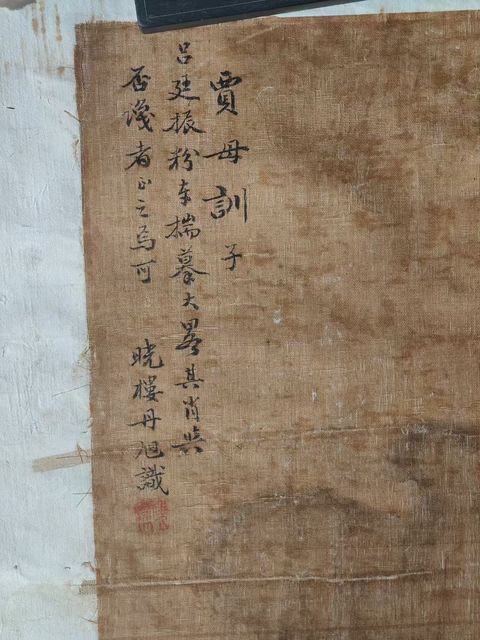 賈母訓子
呂廷振粉本揣摹大畧其肖與
否識者正之焉可
曉樓丹旭識